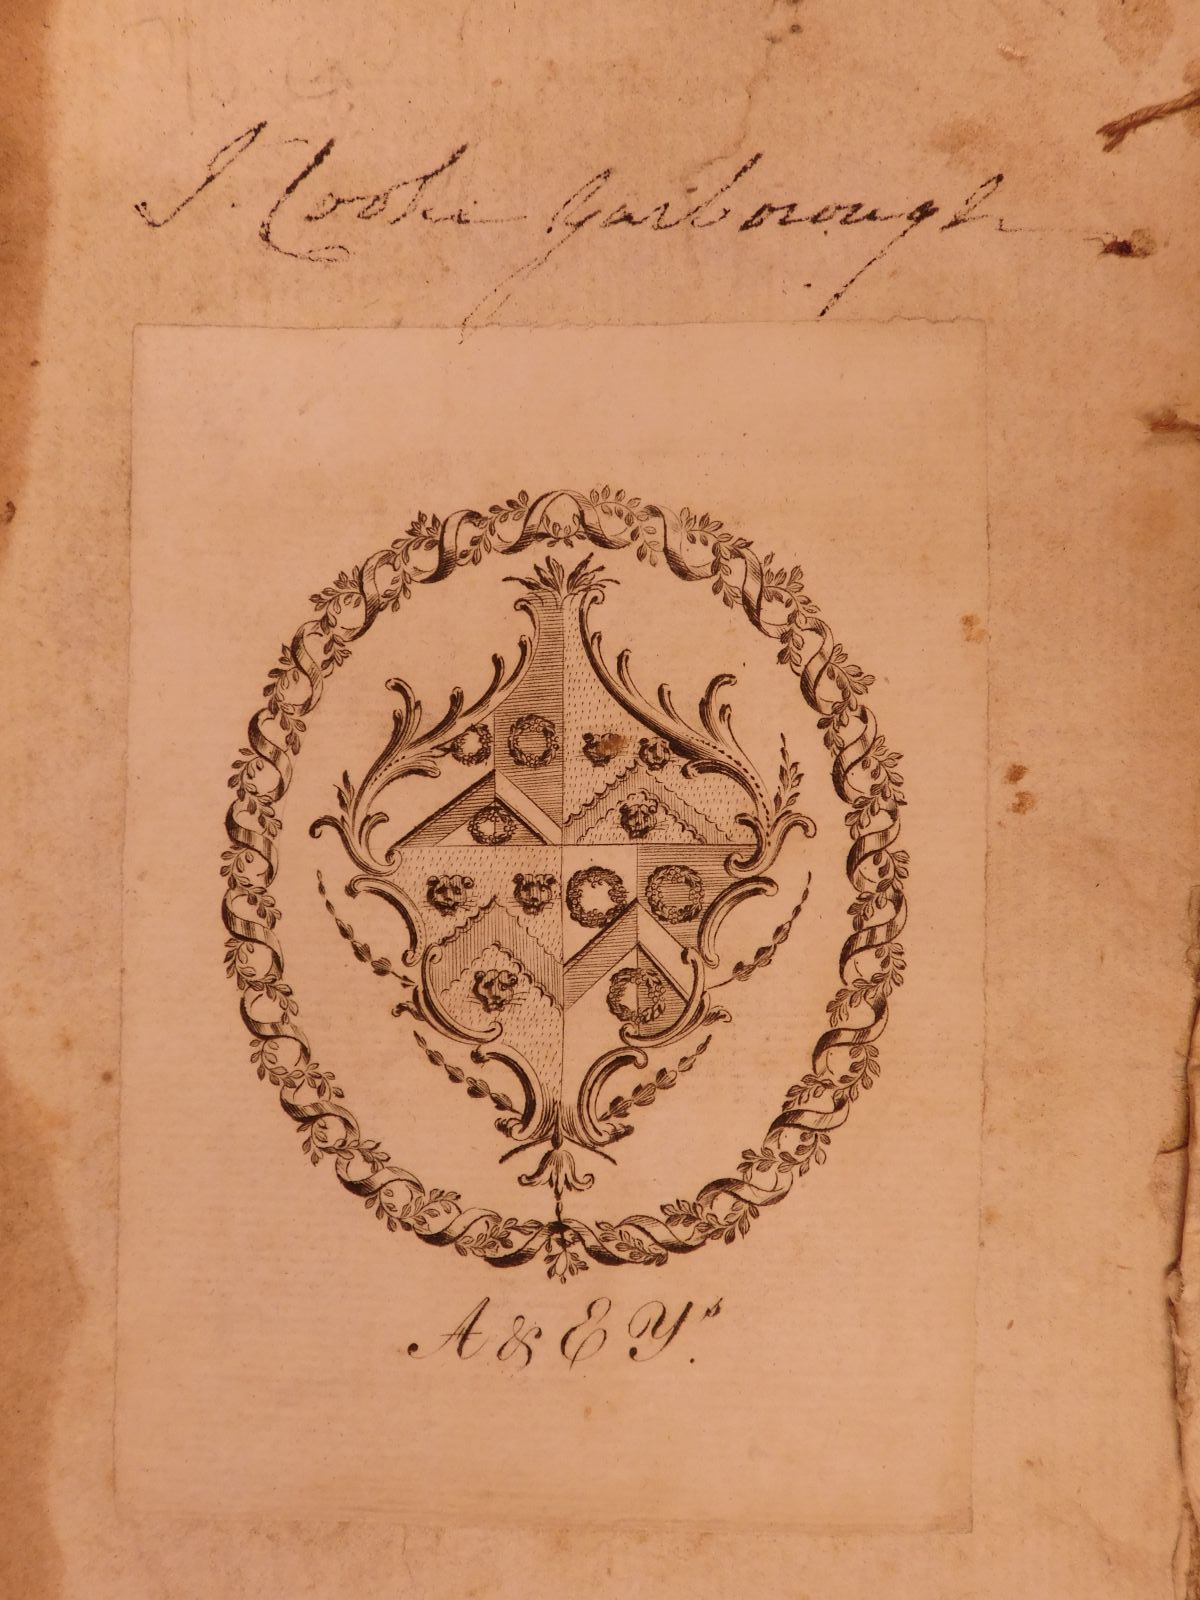 J. Cooke Yarborough
A & E Yˢ.